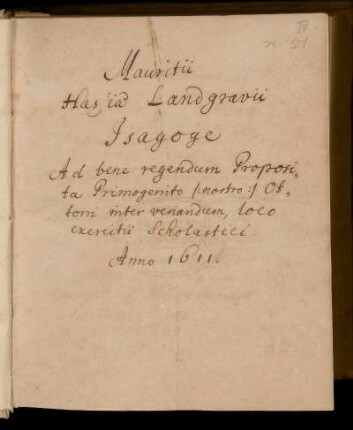 II
n. 51
Mauritii
Hassiæ Landgravii
Isagoge
Ad bene regendum Proposi,
ta Primogenito /:nostro:/ Ot,
toni inter venandum, loco
exercitii Scholastici.
Anno 1611.